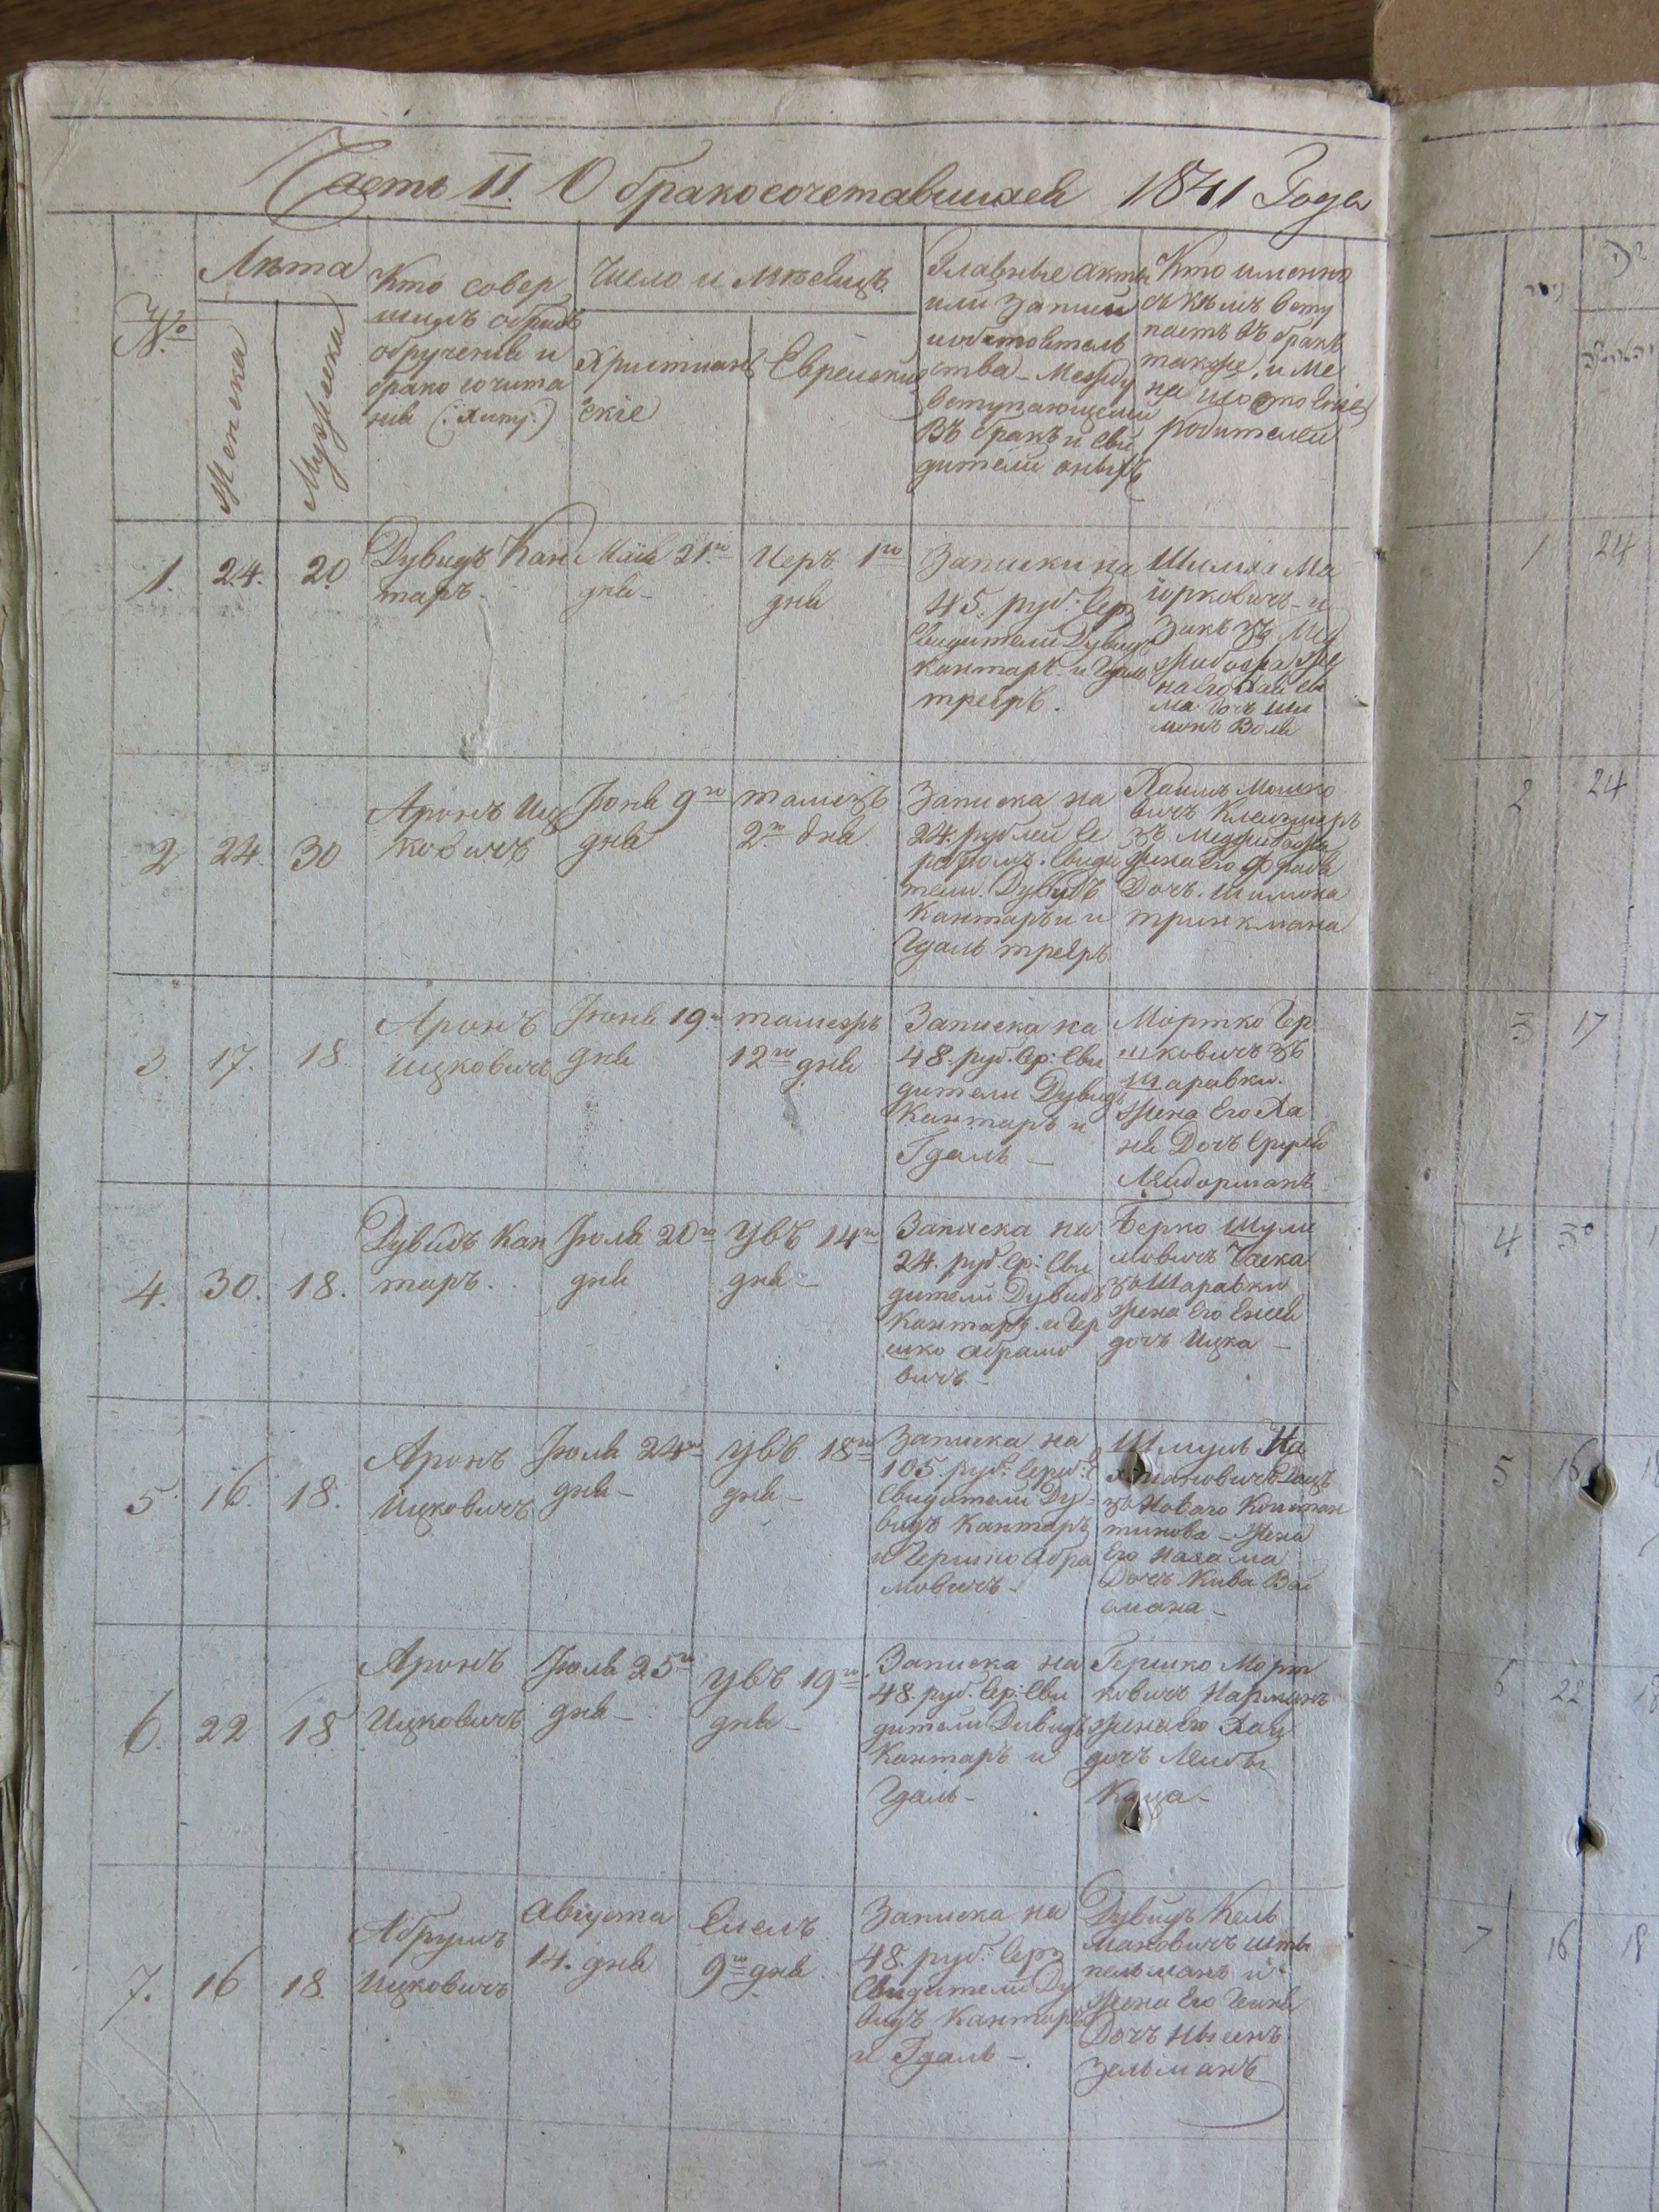 Часть II. О бракосочетавшихся 1841 Года
№
Лѣта
Женска
Мужеска
Кто совер
шилъ обрядъ
обрученія и
брако сочита
нія (: Хипу:)
Число и Мѣсяцъ
Христиан
скіе
Еврейскіе
Главные акты
или Записи
ства – Между
вступающими
Въ бракъ и сви
дители оныхъ
Кто именно
съ кѣмъ всту
паетъ въ бракъ
также, и Име
на
родителей
1.
24.
20
Дувидъ Кан
таръ –
Маія 21го
дня –
Іеръ 1го
дня
Записки на
45. руб: сер
Свидители Дувидъ
Кантаръ и Гдаль
треіръ.
Шмиля Ма
іорковичъ – и
Закъ зъ Ме
жибожа же
на его
дочъ Ши
монъ Воля
2
24.
30
Аронъ Иц
ковичъ
Іюня 9го
дня
тамезъ
2го дня
Записка на
24. рублей се
ребромъ. Свиди
тели. Дувидъ
Кантаръ и
Гдаль треіръ
Хаимъ Мошко
вичъ Клейзмеръ
зъ Меджибожа
жена его Фрада
Дочъ. Шимона
тринкмана
3
17.
18.
Аронъ
Ицковичъ
Іюня 19го
дня
тамезъ
12го дня
Записка на
48. руб. сер: Сви
дители Дувидъ
Кантаръ и
Гдаль –
Мортко Гер
шковичъ зъ
Шаравки.
жена Его Ха
ня Дочъ Сруля
Лейдорманъ
4.
30.
18.
Дувидъ Кан
таръ.
Іюля 20го
дня
увъ 14го
дня –
Записка на
24. руб. сер: Сви
дители Дувидъ
Кантаръ. и Гер
шко Абрамо
вичъ –
Берко Шули
мовичъ Часка
зъ Шаравки
жена Его Енея
дочъ Ицка –
5
16.
18.
Аронъ
Ицковичъ
Іюля 24го
дня –
увъ. 18го
дня –
Записка на
105. руб: сереб:
Свидители Ду –
видъ Кантаръ
и Гершко Абра
мовичъ –
Шмуль На
зъ Новаго Констан
тинова – Жена
Его Нахама
Дочъ Кива Вай
смана –
6.
22
18
Аронъ
Ицковичъ
Іюля 25го
дня –
увъ 19го
дня –
Записка на
48. руб. сер: Сви
дители Дивидъ
Кантаръ и
Гдаль –
Гершко Морт
ковичъ Нарманъ
жена Его Хая
дочъ Лейбы
Каца –
7.
16
18.
Абрумъ
Ицковичъ
Августа
14. дня
Елелъ
9го дня
Записка на
48. руб: сер
Свидители Ду
видъ Кантаръ
и Гдаль –
Дувидъ Кель
мановичъ Шты
пельманъ и
жена Его Гейня
Дочъ Нысинъ
Зельманъ
1
24
2
24
3
17
4
30
5
16
18
6
22
18
7
16
18